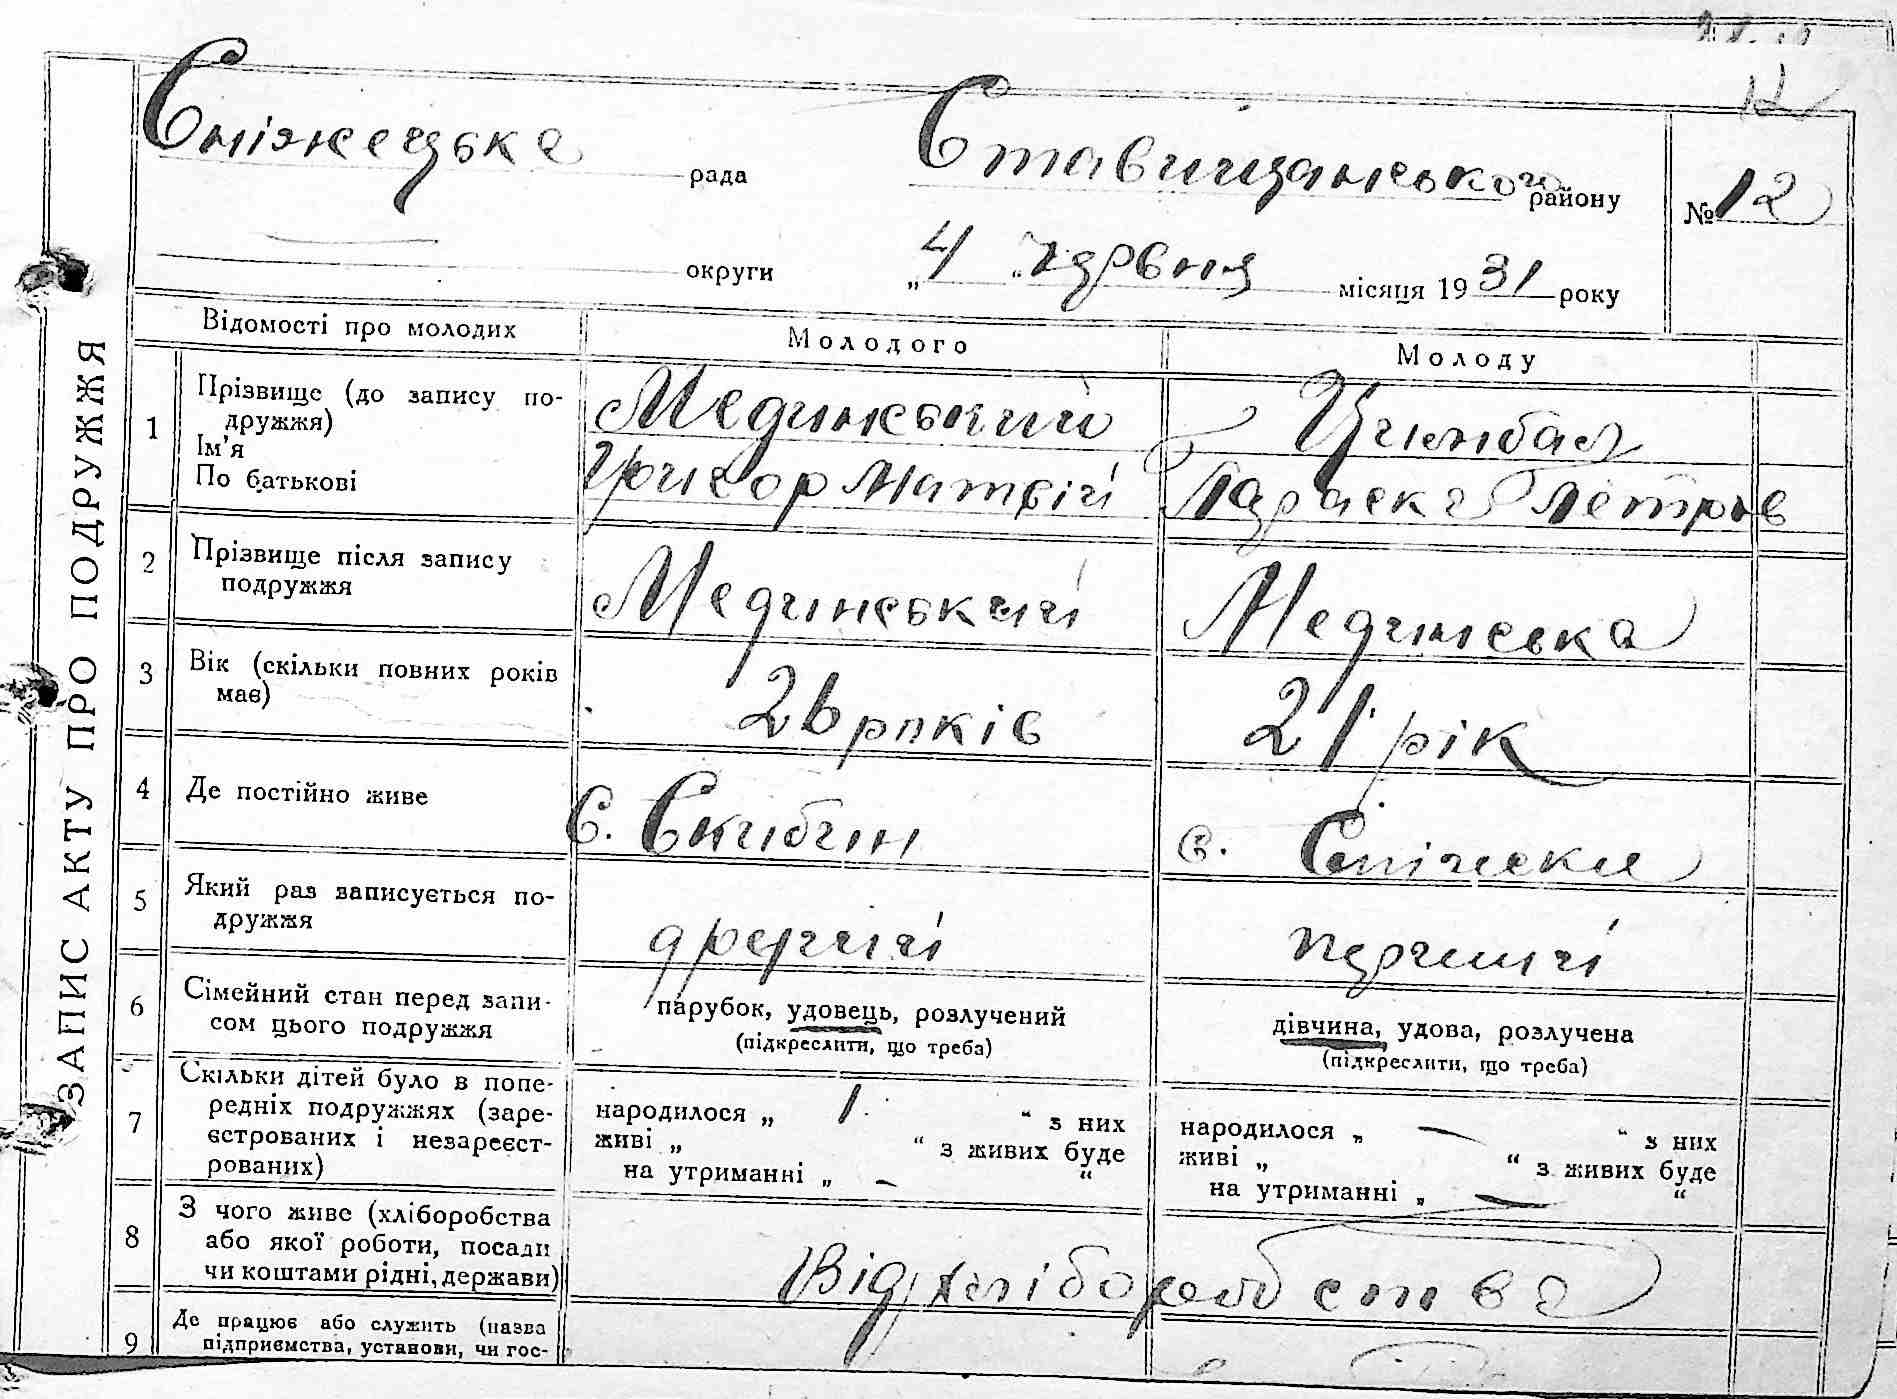 Сніжецька рада Ставищанського району № 12
округи „4 “ червня місяця 1931 року
ЗАПИС АКТУ ПРО ПОДРУЖЖЯ
Відомості про молодих Молодого Молоду
1 Прізвище (до запису по-
дружжя) Мединський Цимбал
Ім’я
По батькові Григор Матвій Параска Петрів
2 Прізвище після запису
подружжя Мединський Мединська
3 Вік (скільки повних років
має) 26 років 21 рік
4 Де постійно живе с. Скибин с. Сніжки
5 Який раз записується по-
дружжя другий перший
6 Сімейний стан перед запи-
сом цього подружжя парубок, удовець, розлучений дівчина, удова, розлучена
(підкреслити, що треба) (підкреслити, що треба)
7 Скільки дітей було в попе-
редніх подружжях (заре-
єстрованих і незареєст-
рованих)
народилося „ 1 “ з них народилося „ — “ з них
живі „ “ з живих буде живі „ “ з живих буде
на утриманні „ – “ на утриманні „ — “
8 З чого живе (хліборобства
або якої роботи, посади
чи коштами рідні, держави) Від хліборобства
9 Де працює або служить (назва
підприємства, установи, чи гос-